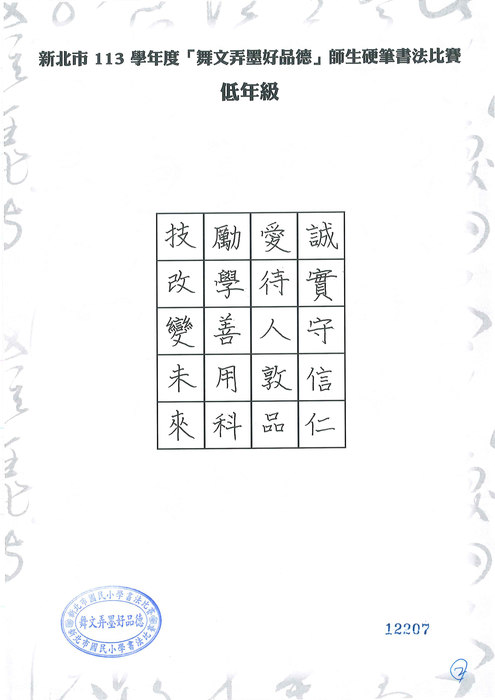 新北市 113 學年度「舞文弄墨好品德」師生硬筆書法比賽
低年級
誠實守信仁
愛待人敦品
勵學善用科
技改變未來
新北市國民小學書法比賽
舞文弄墨好品德
新北市國民小學書法比賽
12207
2